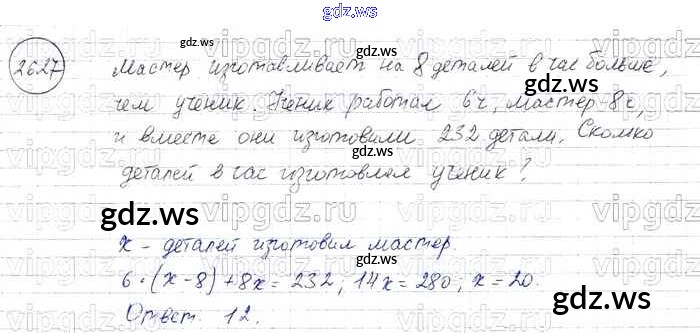 gdz.ws
2627
Мастер изготавливает на 8 деталей в час больше,
чем ученик. Ученик работал 6ч, мастер - 8ч,
и вместе они изготовили 232 детали. Сколко
деталей в час изготовлял ученик?
x - деталей изготовил мастер.
6·(x-8)+8x=232, 14x=280, x=20.
Ответ. 12.
gdz.ws